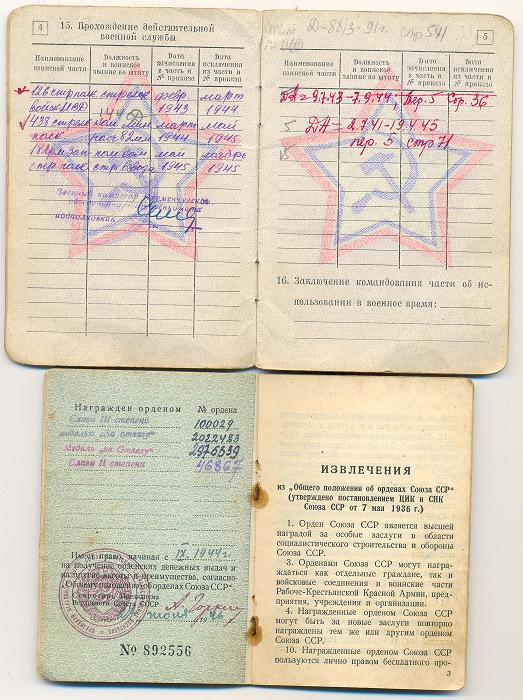 4
15. Прохождение действительной
военной службы
Наименование воинской части
Должность и воинское звание по штату
Дата зачисления в часть и № приказа
Дата исключения из части и № приказа
126 стр полк стрелок февр. март
войск МВД 1943 1944
438 стрелк март май
полк 1944 1945
стр полк 1945 1945
Военный комиссар
подполковник
5
Д-88/3-91г. стр 541
Наименование воинской части
Должность и воинское звание по штату
Дата зачисления в часть и № приказа
Дата исключения из части и № приказа
5
пер. 5 стр 71
16. Заключение командования части об ис-
пользовании в военное время:
Награжден орденом № ордена
Славы III степени 100029
медалью „За отвагу“ 2022483
Медаль „За Отвагу“ 2976539
Славы II степени 46867
Имеет право, начиная с IX. 1944 г.
на получение орденских денежных выдач и
на другие льготы и преимущества, согласно
Общему положению об орденах Союза ССР.
Секретарь Президиума
Верховного Совета СССР
№ 892556
ИЗВЛЕЧЕНИЯ
из „Общего положения об орденах Союза ССР“
(утверждено постановлением ЦИК и СНК
Союза ССР от 7 мая 1936 г.)
1. Орден Союза ССР является высшей
наградой за особые заслуги в области
социалистического строительства и обороны
Союза ССР.
3. Орденами Союза ССР могут награ-
ждаться как отдельные граждане, так и
войсковые соединения и воинские части
Рабоче-Крестьянской Красной Армии, пред-
приятия, учреждения и организации.
4. Награжденные орденом Союза ССР
могут быть за новые заслуги повторно
награждены тем же или другим орденом
Союза ССР.
10. Награжденные орденом Союза ССР
пользуются лично правом бесплатного про-
3